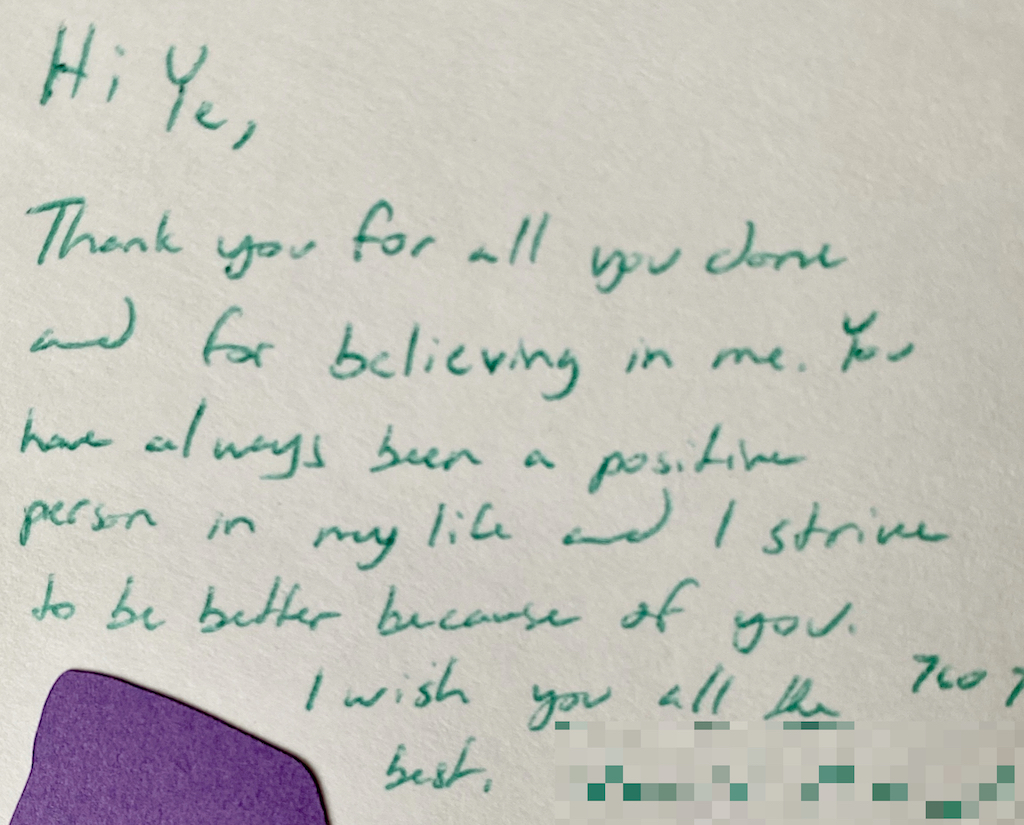 Hi Ye,
Thank you for all you done
and for believing in me. You
have always been a positive
person in my life and I strive
to be better because of you.
I wish you all the
best.